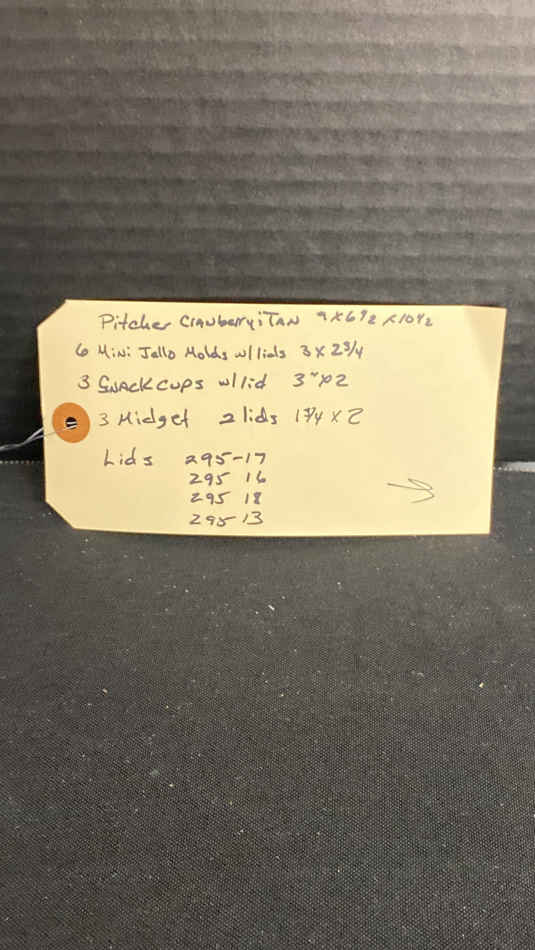 Pitcher Cranberry & Tan 9 x 6 1/2 x 10 1/2
6 Mini Jello Molds w/lids 3 x 2 3/4
3 Snack cups w/lid 3" x 2
3 Midget 2 lids 1 3/4 x 2
Lids 295-17
295 16
295 18
295-13